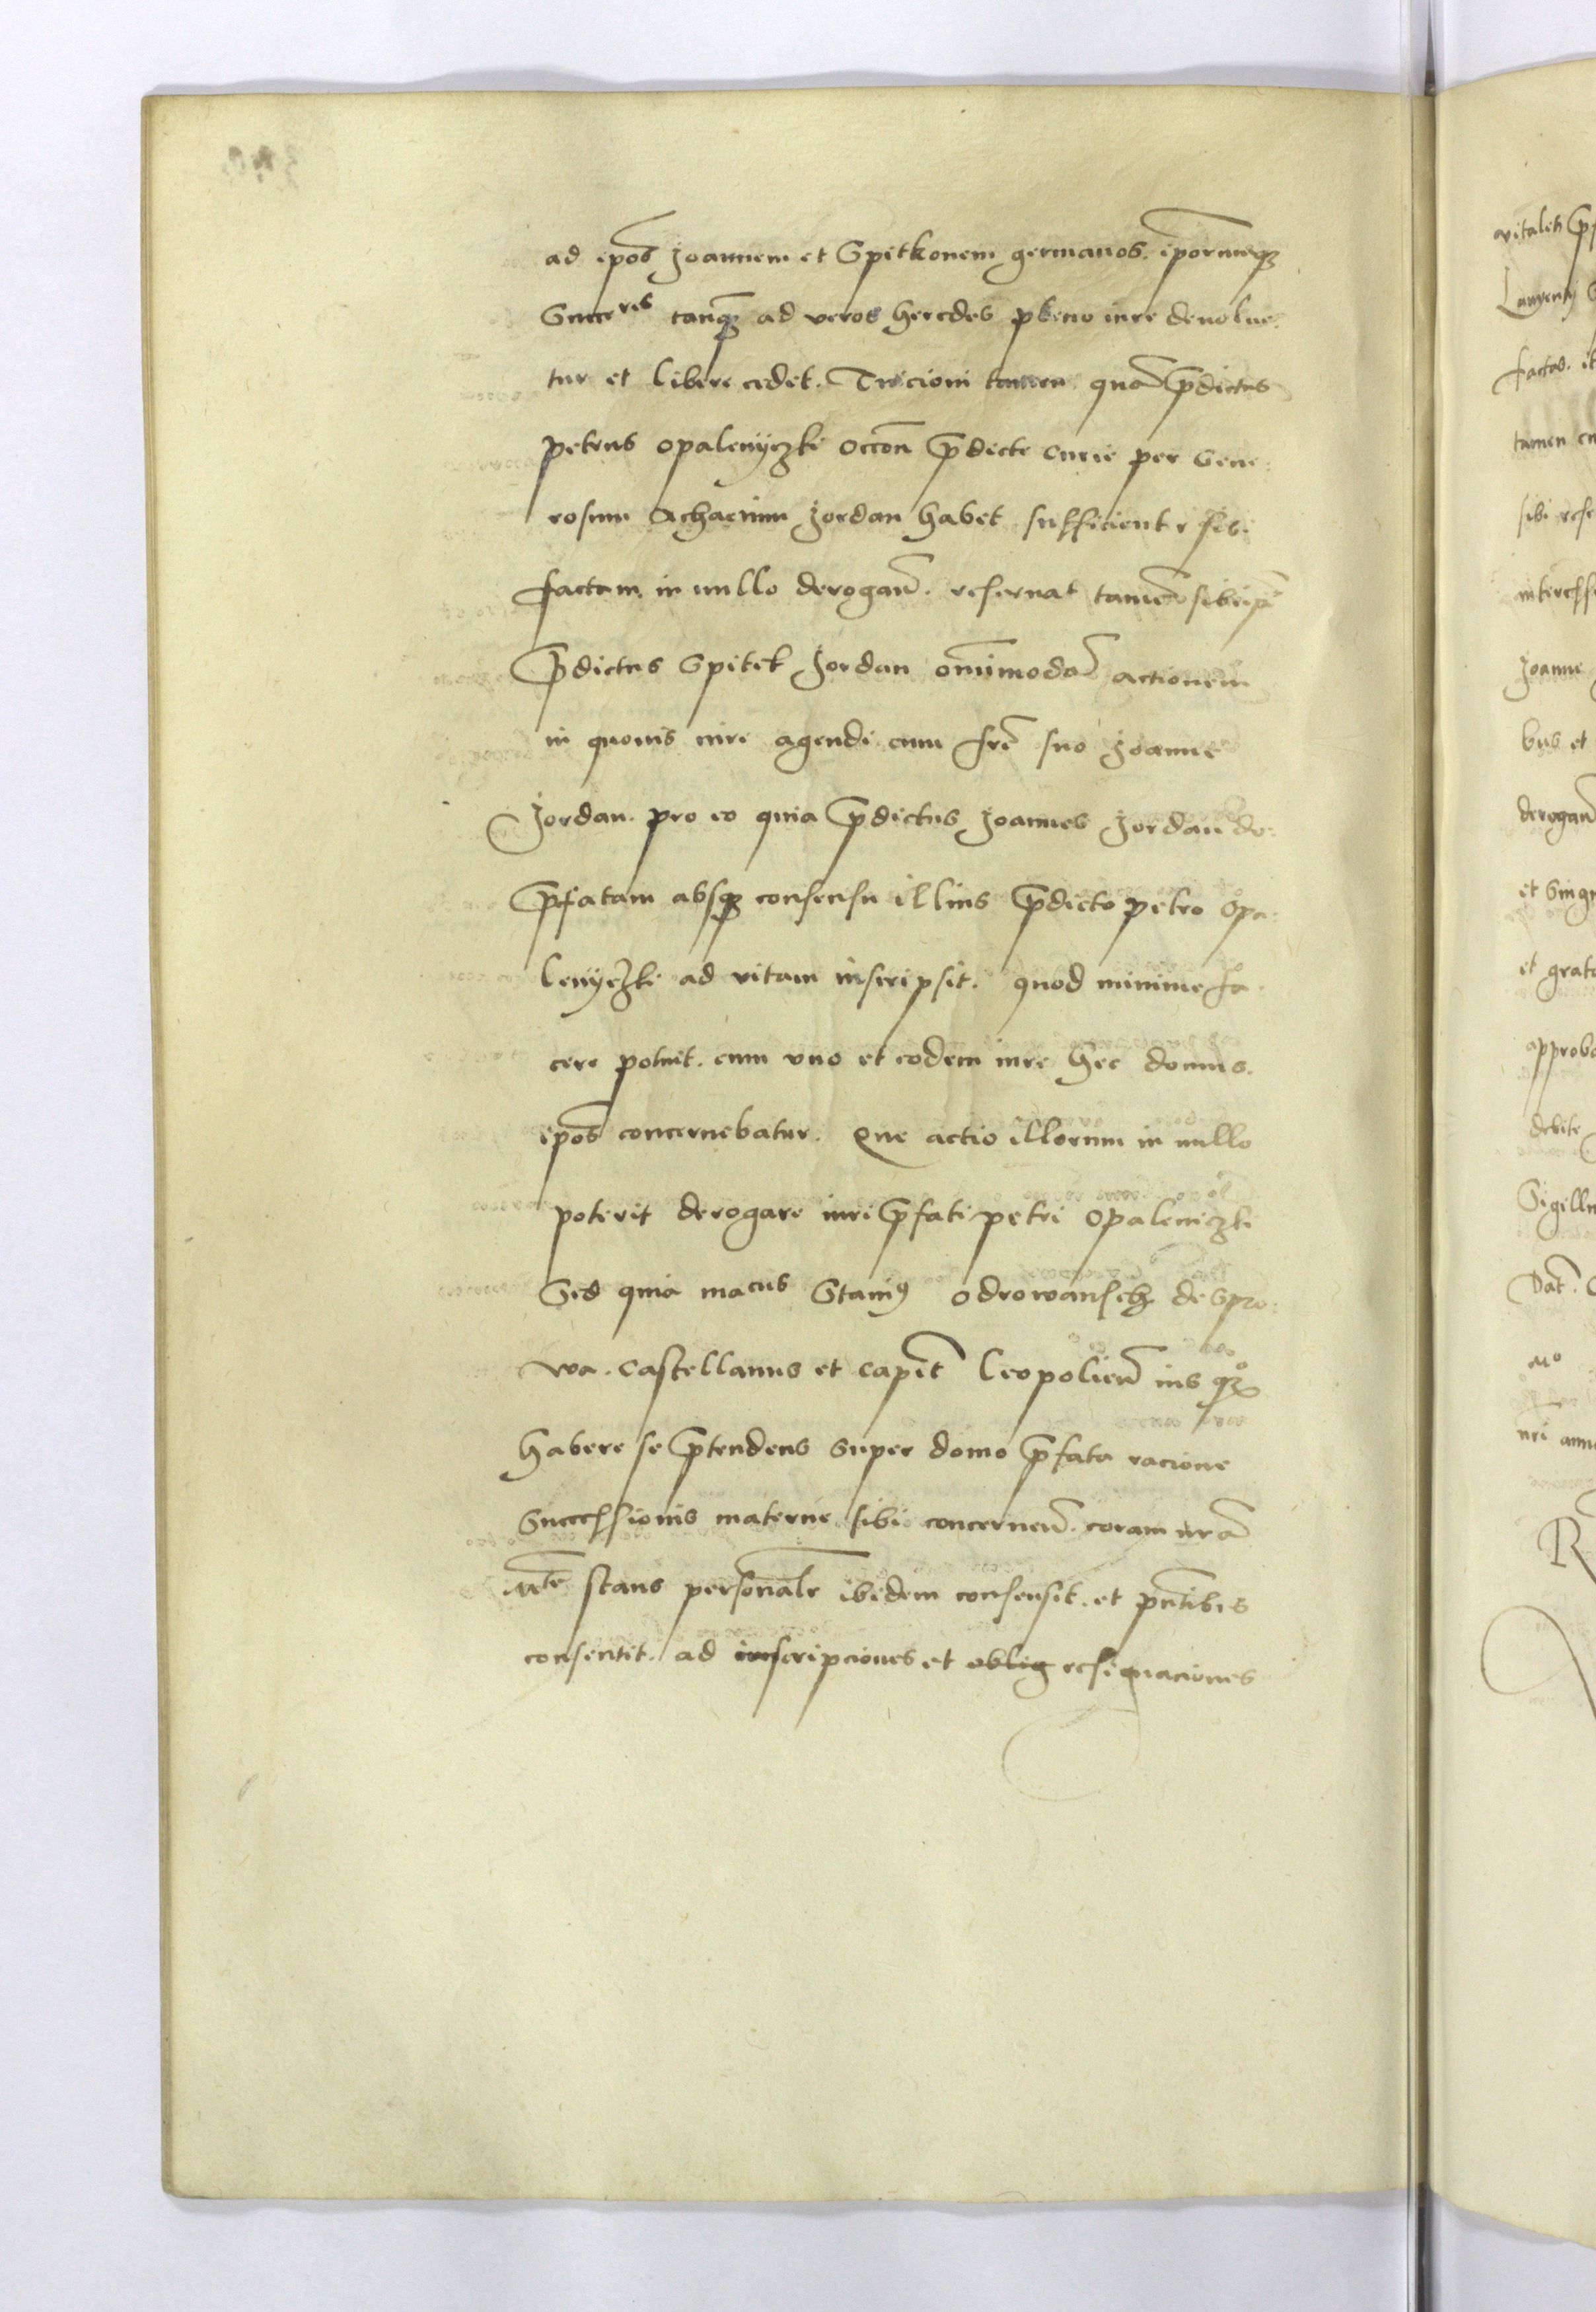 ad ip̄os Joannem et Spitkonem germanos. ip̄orumqꝫ
Succeres tanqꝫ ad veros heredes pleno iure deuolue:
tur et libere cedet. Tuicioni tamen quā p̄dictus
petrus opalenÿczki occōn p̄dicte curie per Gene:
rosum Achacium Jordan habet sufficienter sibi
factam in nullo derogan̄. reseruat tamen̄ sibiip̄i
p̄dictus Spitek Jordan om̄imodā actionem
in quouis iure agendi cum fr̄e suo Joanne
Jordan. pro eo quia p̄dictus Joannes Jordan do:
p̄fatam absqꝫ consensu illius p̄dicto petro Opa:
lenÿczki ad vitam inscripsit. quod minime fa:
cere potuit. cum vno et eodem iure hec domus.
ip̄os concernebatur. Que actio illorum in nullo
poterit derogare iuri p̄fati petri opaleniczki
Sed quia macus Staniꝰ odrowansch de Spro:
wa. Castellanus et capit̄ leopolien̄ ius qꝫ
habere se p̄tendens super domo p̄fata racione
Successionis materne sibi concernen̄. coram nr̄a
Mte stans personalr̄ ibidem consensit. et pn̄tibus
consentit. ad inscripciones et oblig resignaciones
vitalit
factas. it
tamen cu
sibi rese
interess
Joanne
bus et
derogan̄
et Sing
et grat
approba
debite
Sigillu
Dat̄. C
Mo
nri anno
R